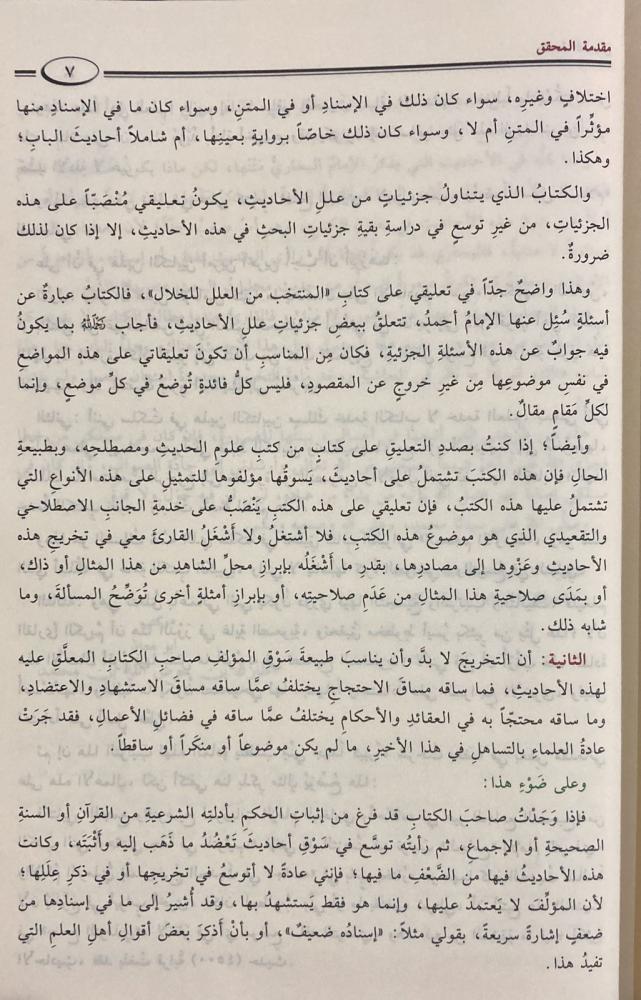 مقدمة المحقق
٧
اختلافٍ وغيرِه، سواء كان ذلك في الإسنادِ أو في المتنِ، وسواء كان ما في الإسنادِ منها
مؤثِّراً في المتنِ أم لا، وسواء كان ذلك خاصّاً بروايةٍ بعينِها، أم شاملاً أحاديثَ البابِ؛
وهكذا.
والكتابُ الذي يتناولُ جزئياتٍ من عللِ الأحاديثِ، يكونُ تعليقي مُنْصَبّاً على هذه
الجزئياتِ، من غيرِ توسعٍ في دراسةِ بقيةِ جزئياتِ البحثِ في هذه الأحاديثِ، إلا إذا كان لذلك
ضرورةٌ.
وهذا واضحٌ جدّاً في تعليقي على كتابِ «المنتخب من العلل للخلال»، فالكتابُ عبارةٌ عن
أسئلةٍ سُئِل عنها الإمامُ أحمدُ، تتعلقُ ببعضِ جزئياتِ عللِ الأحاديثِ، فأجاب رَحِمَهُ اللهُ بما يكونُ
فيه جوابٌ عن هذه الأسئلةِ الجزئيةِ، فكان مِن المناسبِ أن تكونَ تعليقاتي على هذه المواضعِ
في نفسِ موضوعِها مِن غيرِ خروجٍ عن المقصودِ، فليس كلُّ فائدةٍ تُوضعُ في كلِّ موضعٍ، وإنما
لكلِّ مَقامٍ مقالٌ.
وأيضاً؛ إذا كنتُ بصددِ التعليقِ على كتابٍ من كتبِ علومِ الحديثِ ومصطلحِه، وبطبيعةِ
الحالِ فإن هذه الكتبَ تشتملُ على أحاديثَ، يَسوقُها مؤلفوها للتمثيلِ على هذه الأنواعِ التي
تشتملُ عليها هذه الكتبُ، فإن تعليقي على هذه الكتبِ يَنْصَبُّ على خدمةِ الجانبِ الاصطلاحي
والتقعيدي الذي هو موضوعُ هذه الكتبِ، فلا أشتغلُ ولا أَشْغَلُ القارئَ معي في تخريجِ هذه
الأحاديثِ وعَزْوِها إلى مصادرِها، بقدرِ ما أَشْغَلُه بإبرازِ محلِّ الشاهدِ من هذا المثالِ أو ذاك،
أو بمَدَى صلاحيةِ هذا المثالِ من عَدَمِ صلاحيتِه، أو بإبرازِ أمثلةٍ أخرى تُوَضِّحُ المسألةَ، وما
شابه ذلك.
الثانية: أن التخريجَ لا بدَّ وأن يناسبَ طبيعةَ سَوْقِ المؤلفِ صاحبِ الكتابِ المعلَّقِ عليه
لهذه الأحاديثِ، فما ساقه مساقَ الاحتجاجِ يختلفُ عمَّا ساقه مساقَ الاستشهادِ والاعتضادِ،
وما ساقه محتجّاً به في العقائدِ والأحكامِ يختلفُ عمَّا ساقه في فضائلِ الأعمالِ، فقد جَرَتْ
عادةُ العلماءِ بالتساهلِ في هذا الأخيرِ، ما لم يكن موضوعاً أو منكَراً أو ساقطاً.
وعلى ضَوْءِ هذا:
فإذا وَجَدْتُ صاحبَ الكتابِ قد فرغ من إثباتِ الحكمِ بأدلتِه الشرعيةِ من القرآنِ أو السنةِ
الصحيحةِ أو الإجماعِ، ثم رأيتُه توسَّع في سَوْقِ أحاديثَ تَعْضُدُ ما ذَهَب إليه وأَثْبَتَه، وكانت
هذه الأحاديثُ فيها من الضَّعْفِ ما فيها؛ فإنني عادةً لا أتوسعُ في تخريجِها أو في ذكرِ عِلَلِها؛
لأن المؤلِّفَ لا يَعتمدُ عليها، وإنما هو فقط يَستشهدُ بها، وقد أُشيرُ إلى ما في إسنادِها من
ضعفٍ إشارةً سريعةً، بقولي مثلاً: «إسنادُه ضعيفٌ»، أو بأنْ أَذكرَ بعضَ أقوالِ أهلِ العلمِ التي
تفيدُ هذا.